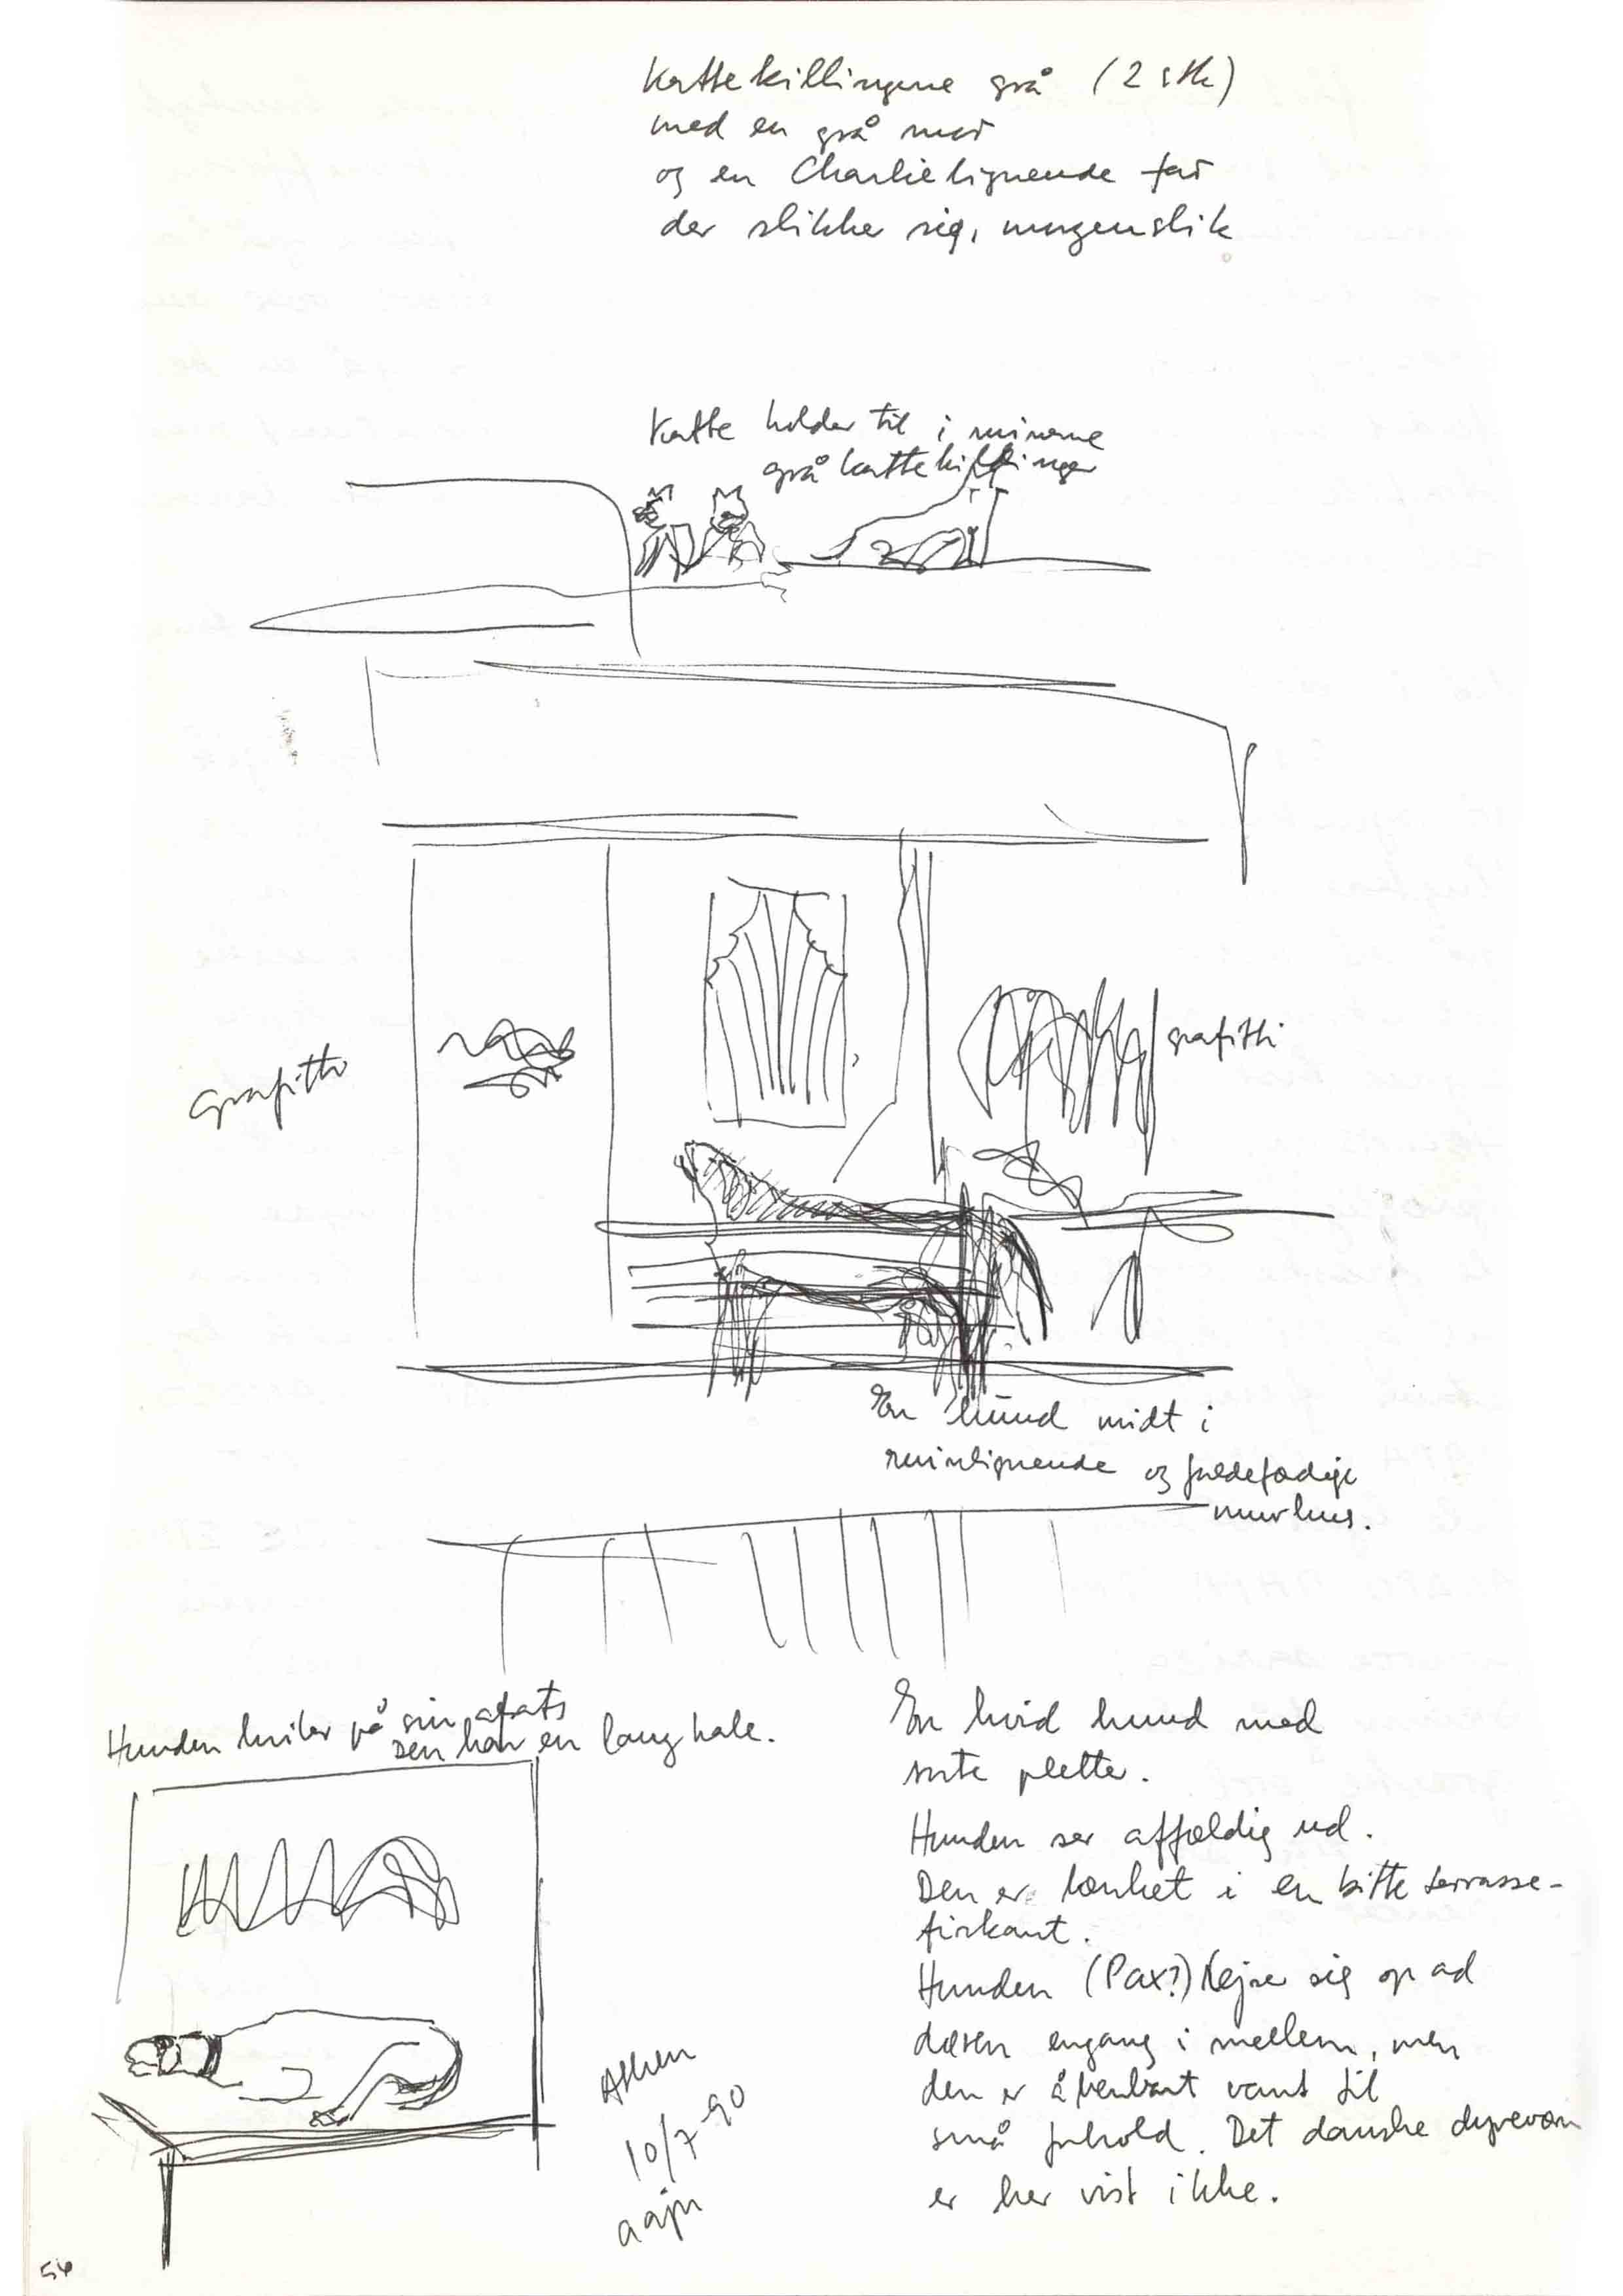 Kattekillingene grå (2 stk)
med en grå mor
og en Charlielignende far
der slikke sig, morgenslik
Katte holder til i ruinerne
grå kattekillinger
Grafitti
grafitti
En hund midt i
ruinlignende og faldefædige
murhus.
Hunden hviler på sin
Den har en lang hale.
En hvid hund med
sorte pletter.
Hunden ser affældig ud.
Den er lænket i en bitte terrasse-
firkant.
Hunden (Pax?) Rejse sig op ad
døsen engang i mellem, men
den er åbenbart vant til
små forhold. Det danske dyreværn
er her vist ikke.
Athen
10/7-90
54